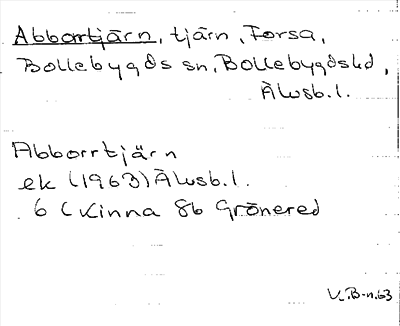 Abborrtjärn, tjärn, Forsa,
Bollebygds sn, Bollebygdshd,
Älvsb. l.
Abborrtjärn
ek (1963) Älvsb. l.
6 C Kinna 8b Grönered